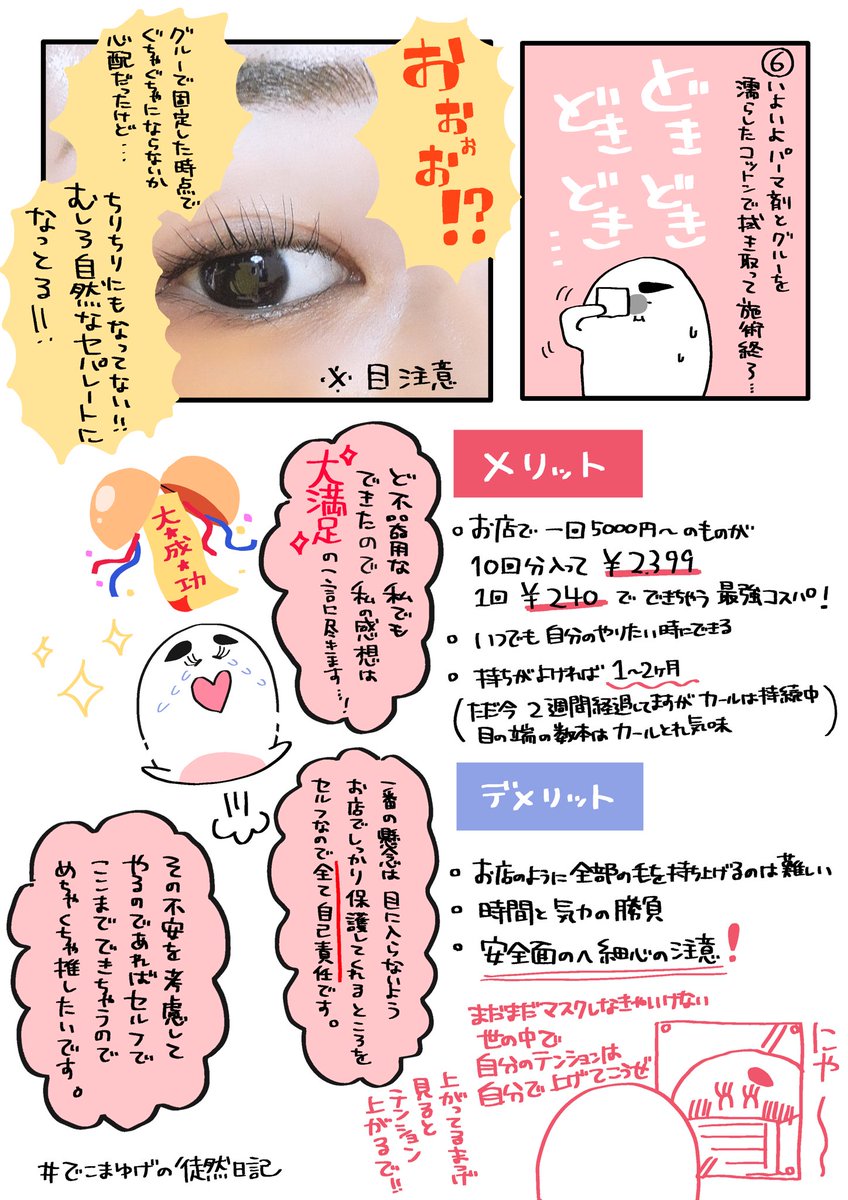 ⑥いよいよパーマ剤とグルーを
濡らしたコットンで拭き取って施術終了…
どき
どき
どき
どき
…
おぉぉお!?
グルーで固定した時点で
ぐちゃぐちゃにならないか
心配だったけど…
ちりちりにもなってない!!
むしろ自然なセパレートに
なってる!!
※目注意
メリット
お店で一回5000円〜のものが
10回分入って¥2.399
1回¥240でできちゃう最強コスパ!
いつでも自分のやりたい時にできる
持ちがよければ1〜2ヶ月
(ただ今2週間経過してますがカールは持続中
目の端の数本はカールとれ気味)
ど不器用な私でも
できたので私の感想は
大満足の一言に尽きます…!
大★成★功
デメリット
お店のように全部の毛を持ち上げるのは難しい
時間と気力の勝負
安全面のへ細心の注意!
一番の懸念は目に入らないよう
お店でしっかり保護してくれるところを
セルフなので全て自己責任です。
その不安を考慮して
やるのであればセルフで
ここまでできちゃうので
めちゃくちゃ推したいです。
まだまだマスクしなきゃいけない
世の中で
自分のテンションは
自分で上げてこうぜ
にや〜
上がってるまつげ
見ると
テンション
上がるで!!
#でこまゆげの徒然日記